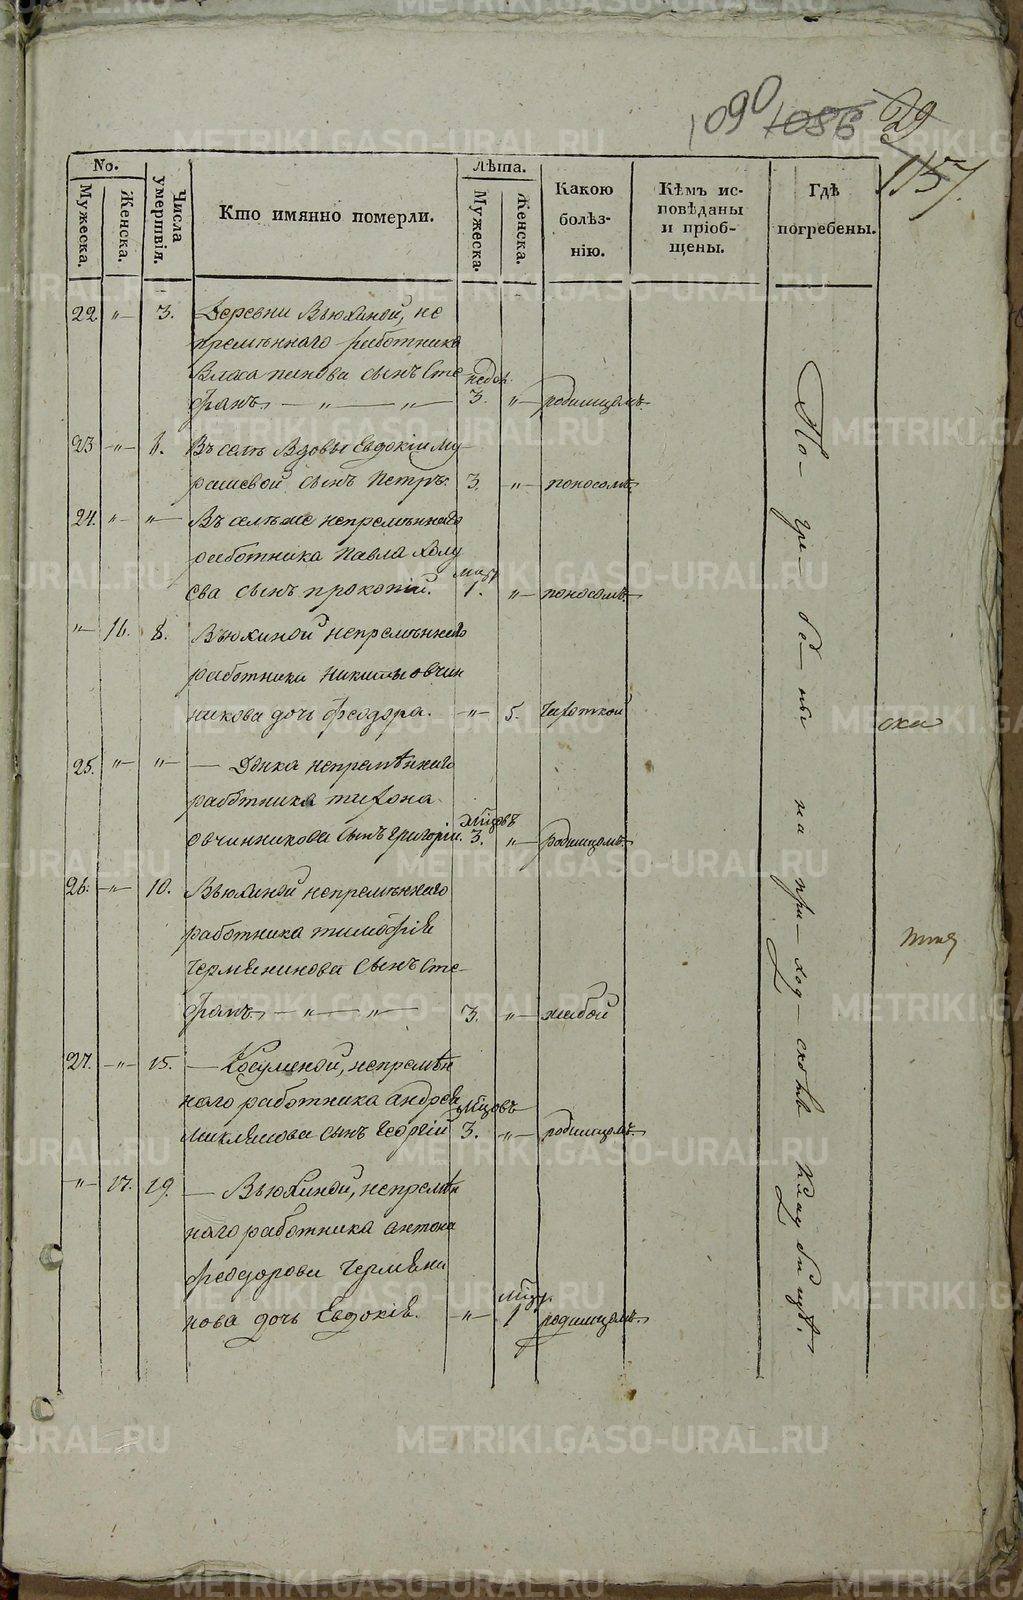 1090 1086 29
157.
No.
Мужеска.
Женска.
Числа умертвія.
Кто имянно померли.
Лѣта.
Мужеска.
Женска.
Какою болѣз-нію.
Кѣмъ ис-повѣданы и пріоб-щены.
Гдѣ погребены.
22 „ 3. Деревни Вьюхиной, не
премѣннаго работника
Власа сынъ Сте недѣл.
фанъ. — „ — „ — 3. „ родимцомъ.
23 „ 6. Въ селѣ Вдовы Евдокіи Му
рашевой сынъ Петръ. 3. „ поносомъ.
24. „ „ Въ селѣ же непремѣннаго
работника Павла Холу
ева сынъ прокопій. 1. „ поносомъ.
„ 16. 8. Вьюхиной непремѣннаго
работника Никиты овчин
никова дочь Феодора. „ 5. Чахоткой
25. „ „ — Донка непремѣннаго
работника тихона
овчинникова сынъ Григорій. 3. „ родимцомъ.
26. „ 10. Вьюхиной непремѣннаго
работника тимофія
Чермянинова сынъ Сте-
фанъ. — „ — „ — 3. „ жабой
27. „ 15. — Косулиной, непремѣн
наго работника андрея
Микляшова сынъ Георгій 3. „ родимцомъ.
„ 17. 19. — Вьюхиной, непремѣн
наго работника антона
феодорова Чермяни
нова дочь Евдокія. „ 1 родимцомъ.
По-гре-бе-ны на при-ход-скомъ кладбищѣ.
ска